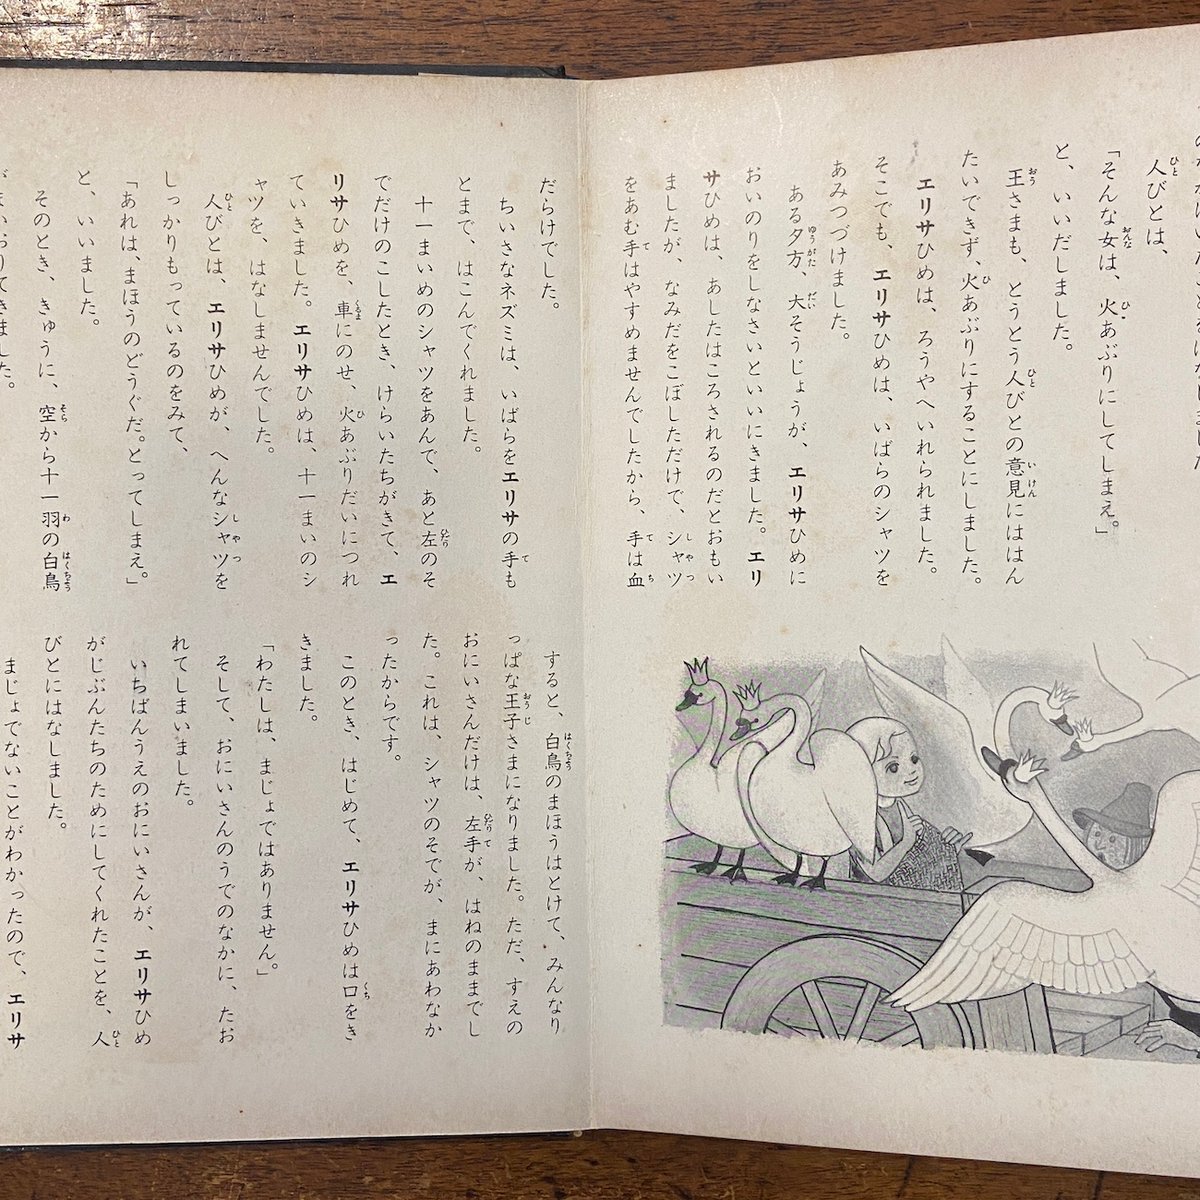 人びとは、
「そんな女は、火あぶりにしてしまえ。」
と、いいだしました。
王さまも、とうとう人びとの意見にははん
たいできず、火あぶりにすることにしました。
エリサひめは、ろうやへいれられました。
そこでも、エリサひめは、いばらのシャツを
あみつづけました。
ある夕方、大そうじょうが、エリサひめに
おいのりをしなさいといいにきました。エリ
サひめは、あしたはころされるのだとおもい
ましたが、なみだをこぼしただけで、シャツ
をあむ手はやすめませんでしたから、手は血
だらけでした。
ちいさなネズミは、いばらをエリサの手も
とまで、はこんでくれました。
十一まいめのシャツをあんで、あと左のそ
でだけのこしたとき、けらいたちがきて、エ
リサひめを、車にのせ、火あぶりだいにつれ
ていきました。エリサひめは、十一まいのシ
ャツを、はなしませんでした。
人びとは、エリサひめが、へんなシャツを
しっかりもっているのをみて、
「あれは、まほうのどうぐだ。とってしまえ」
と、いいました。
そのとき、きゅうに、空から十一羽の白鳥
がまいおりてきました。
すると、白鳥のまほうはとけて、みんなり
っぱな王子さまになりました。ただ、すえの
おにいさんだけは、左手が、はねのままでし
た。これは、シャツのそでが、まにあわなか
ったからです。
このとき、はじめて、エリサひめは口をき
きました。
「わたしは、まじょではありません。」
そして、おにいさんのうでのなかに、たお
れてしまいました。
いちばんうえのおにいさんが、エリサひめ
がじぶんたちのためにしてくれたことを、人
びとにはなしました。
まじょでないことがわかったので、エリサ